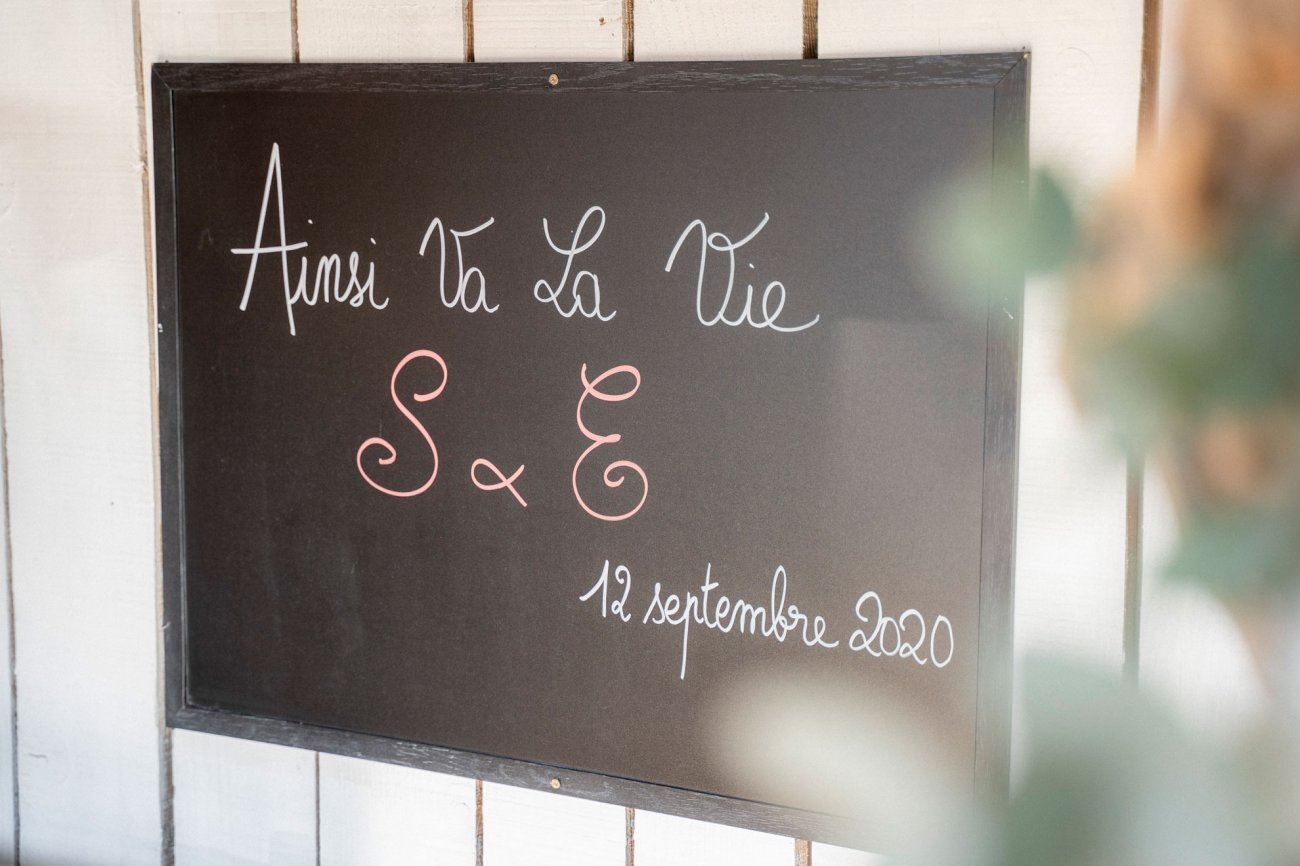 Ainsi Va La Vie
S & E
12 septembre 2020